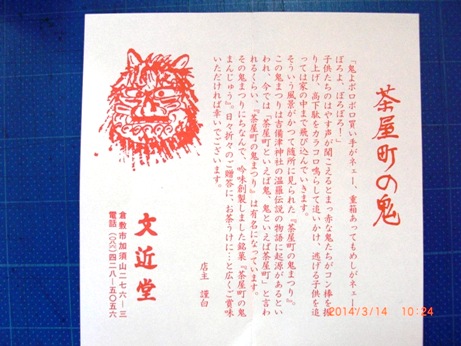 茶屋町の鬼
「鬼よボロボロ買い手がネェー、重箱あってもめしがネェー
ぼろよ、ぼろぼろ！」
子供たちのはやす声が聞こえるとまっ赤な鬼たちがコン棒を振
り上げ、高下駄をカラコロ鳴らして追いかけ、逃げる子供を追
っては家の中まで飛び込んでいきます。
そういう風景がかつて随所に見られた『茶屋町の鬼まつり』。
この鬼まつりは吉備津神社の温羅伝説の物語に起源があるとい
われ、今では、「茶屋町といえば鬼、鬼といえば茶屋町」と言わ
れるくらい、『茶屋町の鬼まつり』は有名になっています。
その鬼まつりにちなんで、吟味創製しました銘菓『茶屋町の鬼
まんじゅう』。日々折々のご贈答に、お茶うけに…と広くご賞味
いただければ幸いでございます。
店主 謹白
文近堂
倉敷市加須山二七六ー三
電話(〇八六)四二八ー五〇五六
2014/3/14 10:24